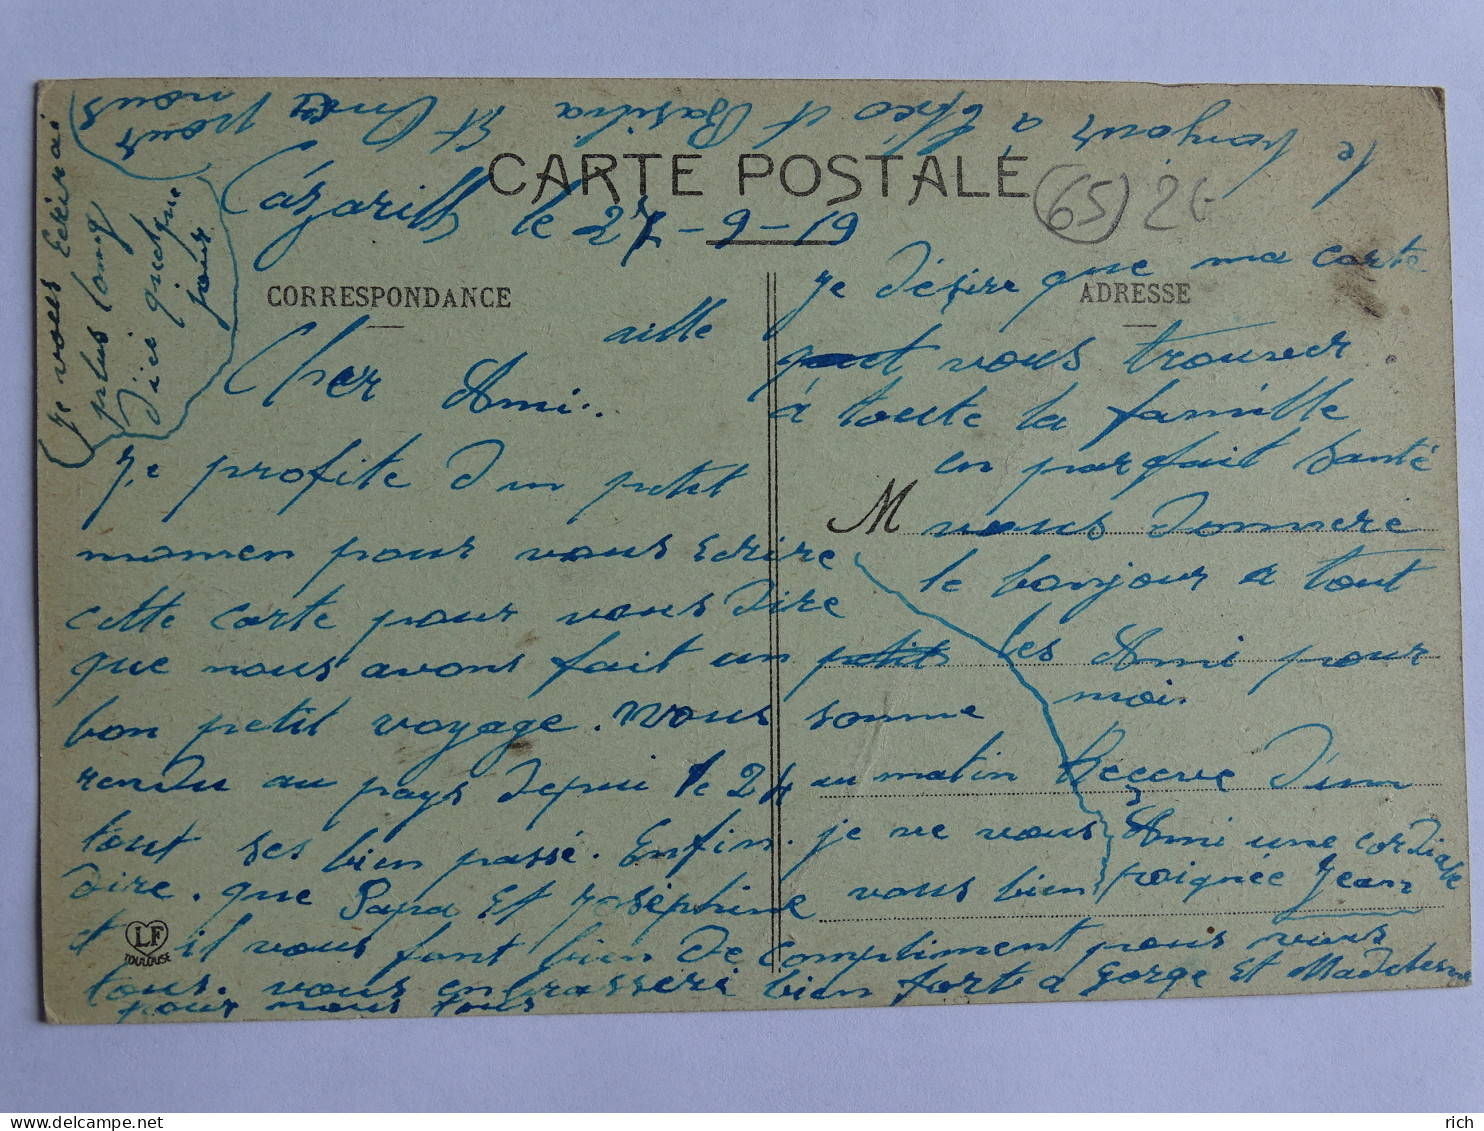 CARTE POSTALE
(65) 2€
le 27-9-19
CORRESPONDANCE
ADRESSE
Cher Ami..
je profite d'un petit
momen pour vous Ecrire
cette carte pour vous dire
que nous avons fait un
bon petit voyage. nous somme
rendu au pays depui le 24 au matin
tout ses bien passé. Enfin. je ne vous
dire. que Papa Et Joséphine vous bien
et il vous font bien de compliment pour vous
tous. vous enbrasseri bien fort a Gorge Et
pour nous tous
Je désire que ma carte
vous trouver
à toute la famille
en parfait santé
M vous donnere
le bonjour a tout
les Ami pour
moi.
Receve d'un
Ami une cordiale
poignée Jean
LF
TOULOUSE
le bonjour à Théo et Basilia Et
pour
nous
Je vous Ecrirai
plus long
d'ici quelque
jour
delcampe.net
rich